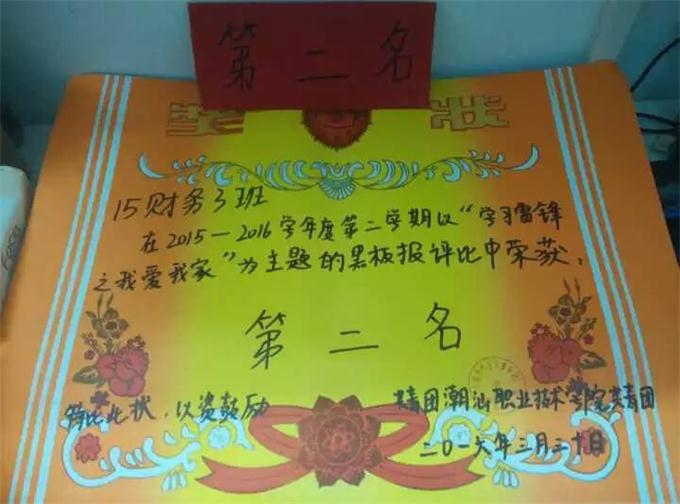 第二名
奖状
15财务3班
在2015—2016学年度第二学期以“学习雷锋
之我爱我家”为主题的黑板报评比中荣获：
第二名
特此此状，以资鼓励
共青团潮汕职业技术学院共青团
二〇一六年三月三十日